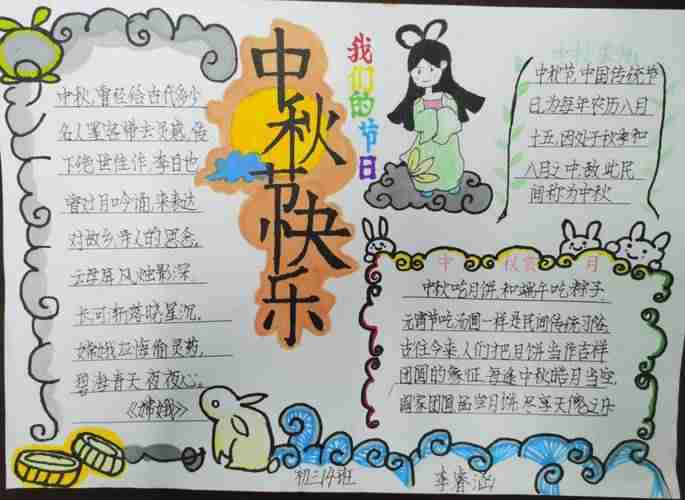 中秋节快乐
我们的节日
中秋,曾经给古代多少
名人墨客带去灵感,留
下绝世佳作,李白也
曾过月吟诵,来表达
对故乡亲人的思念,
云母屏风烛影深,
长河渐落晓星沉,
嫦娥应悔偷灵药,
碧海青天夜夜心。
《嫦娥》
中秋来
中秋节中国传统节
日,为每年农历八月
十五,因处于秋季和
八月之中,故此民
间称为中秋
中 秋赏 月
中秋吃月饼,和端午吃粽子,
元宵节吃汤圆一样是民间传统习俗
古往今来,人们把月饼当作吉祥
团圆的象征,每逢中秋皓月当空,
阖家团圆品尝月饼,尽享天伦之乐
初二14班
李睿涵